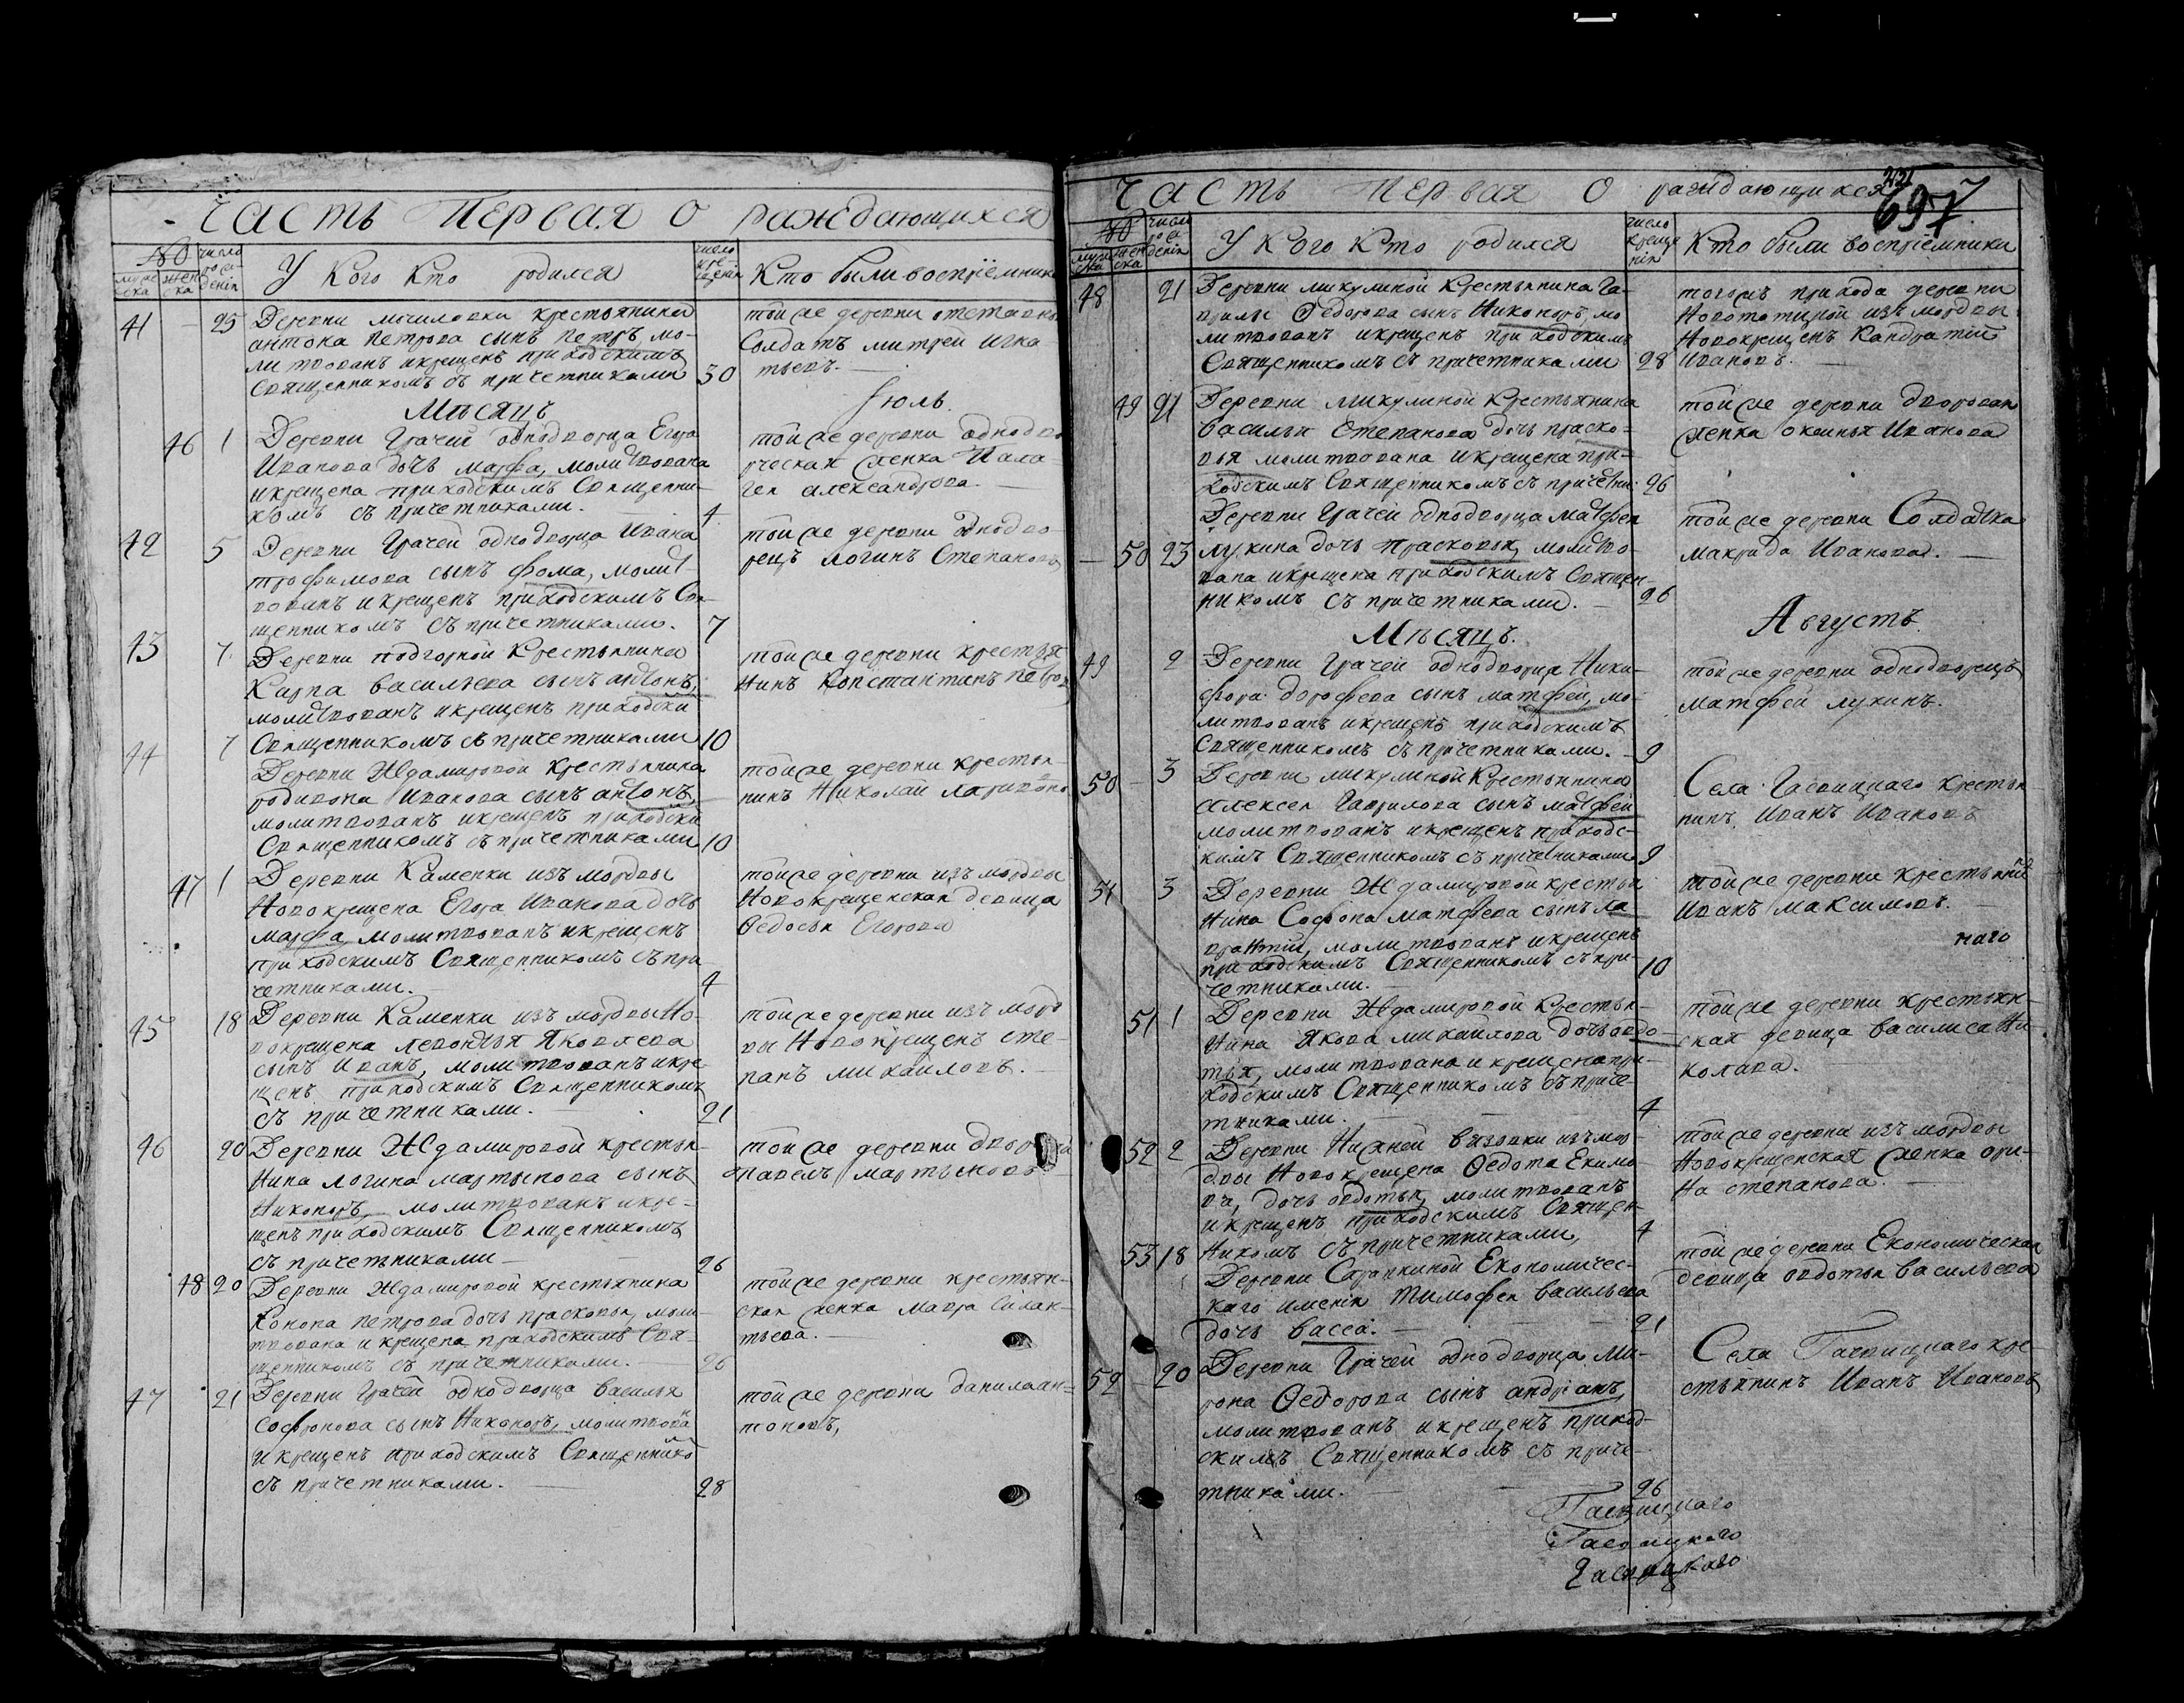 Часть первая о раждающихся
№
муже
ска
жен
ска
число
рож
денія
У кого кто родился
число
кре-
щенія
Кто были воспріемники
41 25 Деревни крестьянина
антона петрова сынъ петръ мо-
литвованъ икрещенъ приходскимъ
Священникомъ съ причетниками 30
той же деревни отставны
Солдатъ митрей игна
тьевъ.
Мѣсяцъ Іюль.
46 1 Деревни Грачей однодворца Егора
Иванова дочь марфа, молитвована
икрещена приходскимъ Священни-
комъ съ причетниками. 4
той же деревни однодво
рческая женка Пала-
гея александрова.
42 5 Деревни Грачей однодворца Ивана
трофимова сынъ фома, молит-
вованъ икрещенъ приходскимъ Свя-
щенникомъ съ причетниками. 7
той же деревни однодво-
рецъ логинъ Степановъ
43 7 Деревни подгорной крестьянина
Карпа васильева сынъ антонъ,
молитвованъ икрещенъ приходски
Священникомъ съ причетниками 10
той же деревни крестья
нинъ Константинъ петров
44 7
Деревни Ждамировой крестьянина
родивона Иванова сынъ антонъ,
молитвованъ икрещенъ приходски
Священникомъ съ причетниками 10
той же деревни крестья-
нинъ Николай ларивоно
47 1 Деревни Каменки изъ мордвы
Новокрещена Егора Иванова дочь
марфа, молитвованъ икрещенъ
приходскимъ Священникомъ съ при
четниками. 4
той же деревни изъ мордвы
Новокрещенская девица
Федосья Егорова
45 18 Деревни Каменки изъ мордвы Но-
вокрещена леонтья Яковлева
сынъ Иванъ, молитвованъ икре
щенъ приходскимъ Священникомъ
съ причетниками. 21
той же деревни изъ морд
вы Новокрещенъ сте-
панъ михаиловъ.
46 20 Деревни Ждамировой крестья-
нина логина мартынова сынъ
Никоноръ, молитвованъ икре-
щенъ приходскимъ Священникомъ
съ причетниками 26
той же деревни
павелъ мартыновъ
48 20 Деревни Ждамировой крестьянина
Конона петрова дочь прасковья, моли-
твована и крещена приходскимъ Свя-
щенникомъ съ причетниками. 26
той же деревни крестьян-
ская женка Мавра Силан-
тьева.
47 21 Деревни Грачей однодворца василья
Софронова сынъ Никоноръ, молитвова
икрещенъ приходскимъ Священнико
съ причетниками. 28
той же деревни данила ан-
тоновъ,
Часть первая о раждающихся
697
№
муже
ска
жен
ска
число
рож
денія
У кого кто родился
число
креще
нія
Кто были воспріемники
48 21 Деревни микулиной крестьянина Га-
врилы Федорова сынъ Никоноръ, мо
литвованъ икрещенъ приходскимъ
Священникомъ съ причетниками 28
тогожъ прихода деревни
изъ мордвы
Новокрещенъ Кандратій
Ивановъ.
49 21 Деревни микулиной крестьянина
василья Степанова дочь праско-
вья молитвована икрещена при-
ходскимъ Священникомъ съ причетни: 26
той же деревни дворован
женка оксинья Иванова
Деревни Грачей однодворца матфея
50 23 лукина дочь прасковья, молитво-
вана икрещена приходскимъ Священ-
никомъ съ причетниками. 26
той же деревни Солдатка
макрида Иванова.
Мѣсяцъ. Августъ
49 2 Деревни Грачей однодворца Ники-
фора дорофеева сынъ матфей, мо-
литвованъ икрещенъ приходскимъ
Священникомъ съ причетниками. 9
той же деревни однодворецъ
матфей лукинъ.
50 3 Деревни микулиной крестьянина
Алексея Гаврилова сынъ матфей
молитвованъ икрещенъ приходс-
кимъ Священникомъ съ причетниками 9
Села крестья-
нинъ Иванъ Ивановъ
51 3 Деревни Ждамировой крестья
нина Софона матфеева сынъ ла
врантій, молитвованъ икрещенъ
приходскимъ Священникомъ съ при-
четниками. 10
той же деревни крестьянин
Иванъ максимовъ.
наго
51 1 Деревни Ждамировой крестья-
нина Якова михаилова дочь авдо-
тья, молитвована и крещена при-
ходскимъ Священникомъ съ приче
тниками. 4
той же деревни крестьян-
ская девица василиса Ни-
колаева.
52 2 Деревни Нижней вязовки изъ мор-
двы Новокрещена Федота Екимо-
ва, дочь авдотья, молитвованъ
икрещенъ приходскимъ Священ-
никомъ съ причетниками, 4
той же деревни изъ мордвы
Новокрещенская женка ори-
на степанова.
53 18
Деревни Економичес-
каго именія Тимофея васильева
дочь васса. 21
той же деревни Економическая
девица авдотья васильева
52 20 Деревни Грачей однодворца Ми-
рона Федорова сынъ андріанъ,
молитвованъ икрещенъ приход-
скимъ Священникомъ съ приче-
тниками. 26
Села кре-
стьянинъ Иванъ Ивановъ